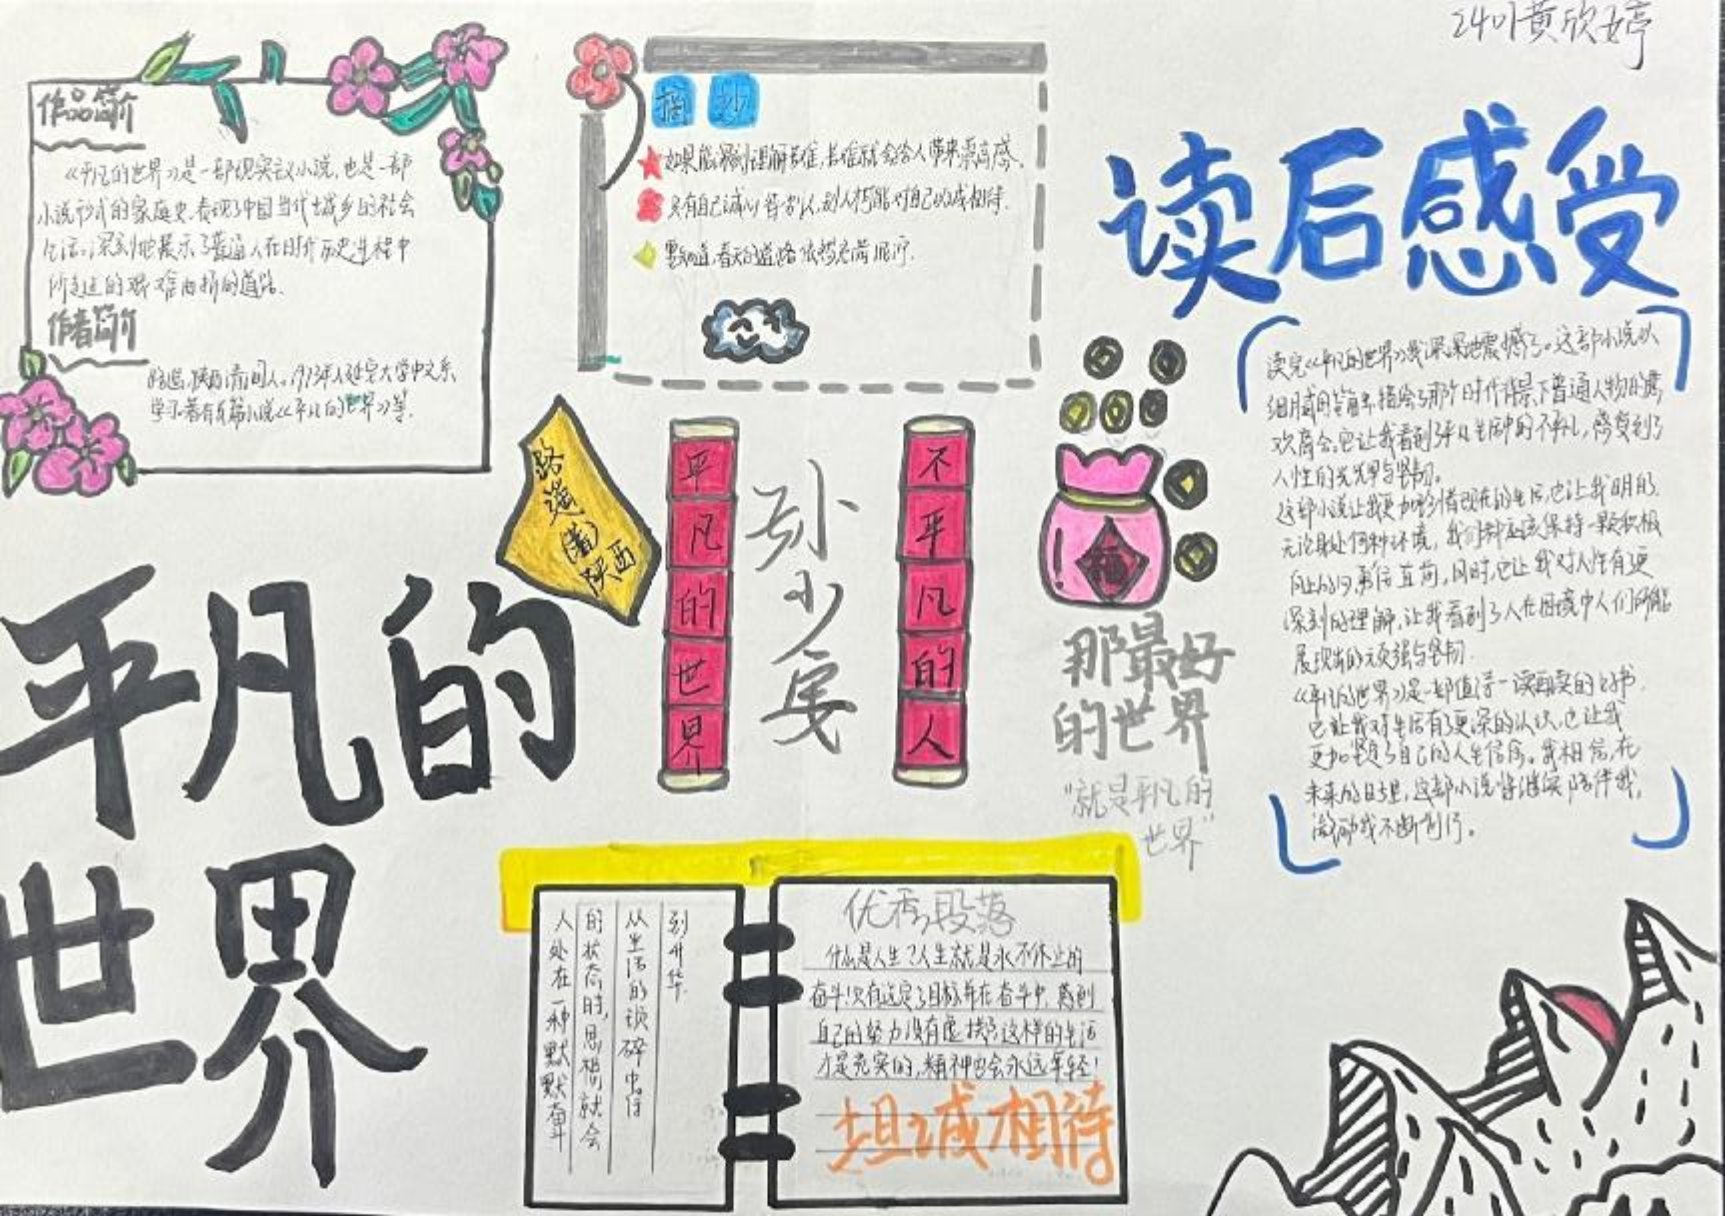 2401黄欣婷
作品简介
《平凡的世界》是一部现实主义小说,也是一部
小说形式的家庭史.表现了中国当代城乡的社会
生活,深刻地展示了普通人在时代历史进程中
所走过的艰难曲折的道路.
作者简介
路遥,陕西清涧人,1973年入延安大学中文系,
学习著有长篇小说《平凡的世界》等.
摘抄
如果能深刻理解苦难,苦难就会给人带来崇高感.
只有自己诚心待别人,别人才能对自己以诚相待.
要知道,春天的道路依然充满泥泞.
读后感受
读完《平凡的世界》我深深地震撼了。这部小说以
细腻的笔触,描绘了那个时代背景下普通人物的悲
欢离合,它让我看到了平凡生活中的不平凡,感受到了
人性的光辉与坚韧.
这部小说让我更加珍惜现在的生活,也让我明白,
无论身处何种环境,我们都应该保持一颗积极
向上的心,勇往直前,同时,它让我对人性有更
深刻的理解,让我看到了人在困境中人们所能
展现出的顽强与坚韧.
《平凡的世界》是一部值得一读再读的好书.
它让我对生活有了更深的认识,也让我
更加坚定了自己的人生信念。我相信,在
未来的日子里,这部小说将继续陪伴我,
激励我不断前行。
路遥
(著)
陕西
平凡的世界
孙少安
不平凡的人
福
那最好
的世界
"就是平凡的
世界"
平凡的
世界
人处在一种默默奋斗
的状态时,思想就会
从生活的琐碎中得
到升华.
优秀段落
什么是人生?人生就是永不休止的
奋斗!只有选定了目标并在奋斗中,感到
自己的努力没有虚掷,这样的生活
才是充实的,精神也会永远年轻!
坦诚相待